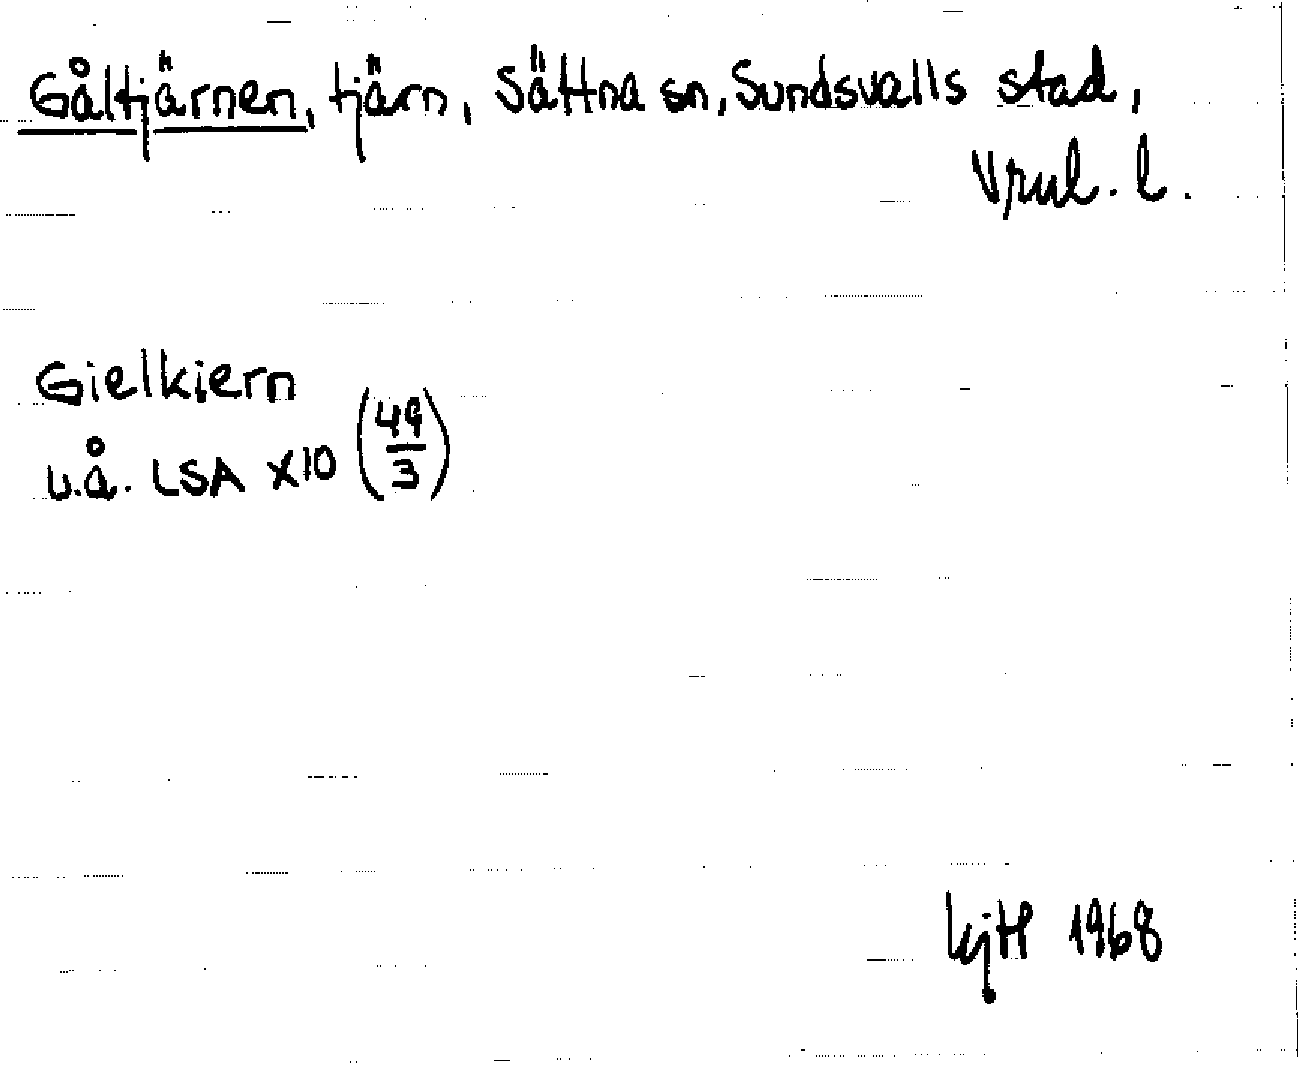 Gåltjärnen, tjärn, Sättna sn, Sundsvalls stad,
Vpml. l.
Gielkiern
u.å. LSA X10 (49/3)
1968